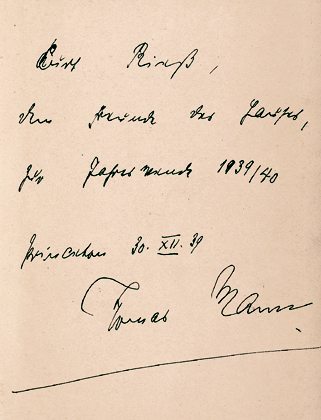 Curt Rieß,
dem Freunde des Hauses,
zur Jahreswende 1939/40
Princeton 30. XII. 39
Thomas Mann